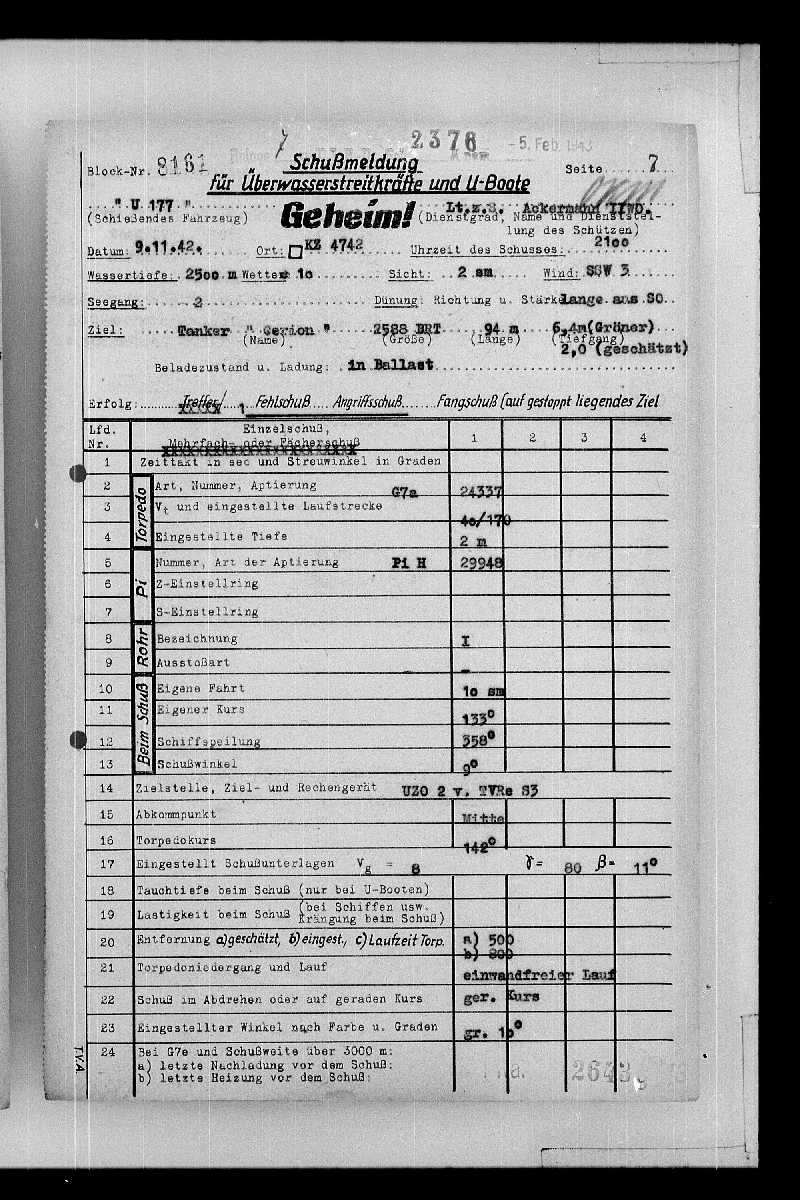 2376 - 5. Feb. 1943
Block-Nr. 8161 7 Schußmeldung Seite 7
für Überwasserstreitkräfte und U-Boote
" U 177 " Geheim! Lt.z.S. Ackermann IIWO.
(Schießendes Fahrzeug) (Dienstgrad, Name und Dienststel-
lung des Schützen)
Datum: 9.11.42. Ort: □ KZ 4742 Uhrzeit des Schusses: 21oo
Wassertiefe: 25oo m Wetter 1o Sicht: 2 sm Wind: SSW 3
Seegang: 2 Dünung: Richtung u. Stärke Lange aus SO
Ziel: Tanker " Cerion " 2588 BRT 94 m 6,4m(Gröner)
(Name) (Größe) (Länge) (Tiefgang)
2,0 (geschätzt)
Beladezustand u. Ladung: in Ballast
Erfolg: Treffer/ 1 Fehlschuß Angriffsschuß Fangschuß (auf gestoppt liegendes Ziel
Lfd. Nr. Einzelschuß, Mehrfach- oder Fächerschuß 1 2 3 4
1 Zeittakt in sec und Streuwinkel in Graden
Torpedo
2 Art, Nummer, Aptierung G7a 24337
3 Vt und eingestellte Laufstrecke 4o/170
4 Eingestellte Tiefe 2 m
Pi
5 Nummer, Art der Aptierung Pi H 29948
6 Z-Einstellring
7 S-Einstellring
Rohr
8 Bezeichnung I
9 Ausstoßart -
Beim Schuß
10 Eigene Fahrt 1o sm
11 Eigener Kurs 133°
12 Schiffspeilung 358°
13 Schußwinkel 9°
14 Zielstelle, Ziel- und Rechengerät UZO 2 v. TVRe S3
15 Abkommpunkt Mitte
16 Torpedokurs 142°
17 Eingestellt Schußunterlagen Vg = 8 γ= 80 β= 11°
18 Tauchtiefe beim Schuß (nur bei U-Booten)
19 Lastigkeit beim Schuß (bei Schiffen usw. Krängung beim Schuß)
20 Entfernung a) geschätzt, b) eingest., c) Laufzeit Torp. a) 500
b) 800
21 Torpedoniedergang und Lauf einwandfreier Lauf
22 Schuß im Abdrehen oder auf geraden Kurs ger. Kurs
23 Eingestellter Winkel nach Farbe u. Graden gr. 1o°
24 Bei G7e und Schußweite über 3000 m:
a) letzte Nachladung vor dem Schuß:
b) letzte Heizung vor dem Schuß:
T.V.A